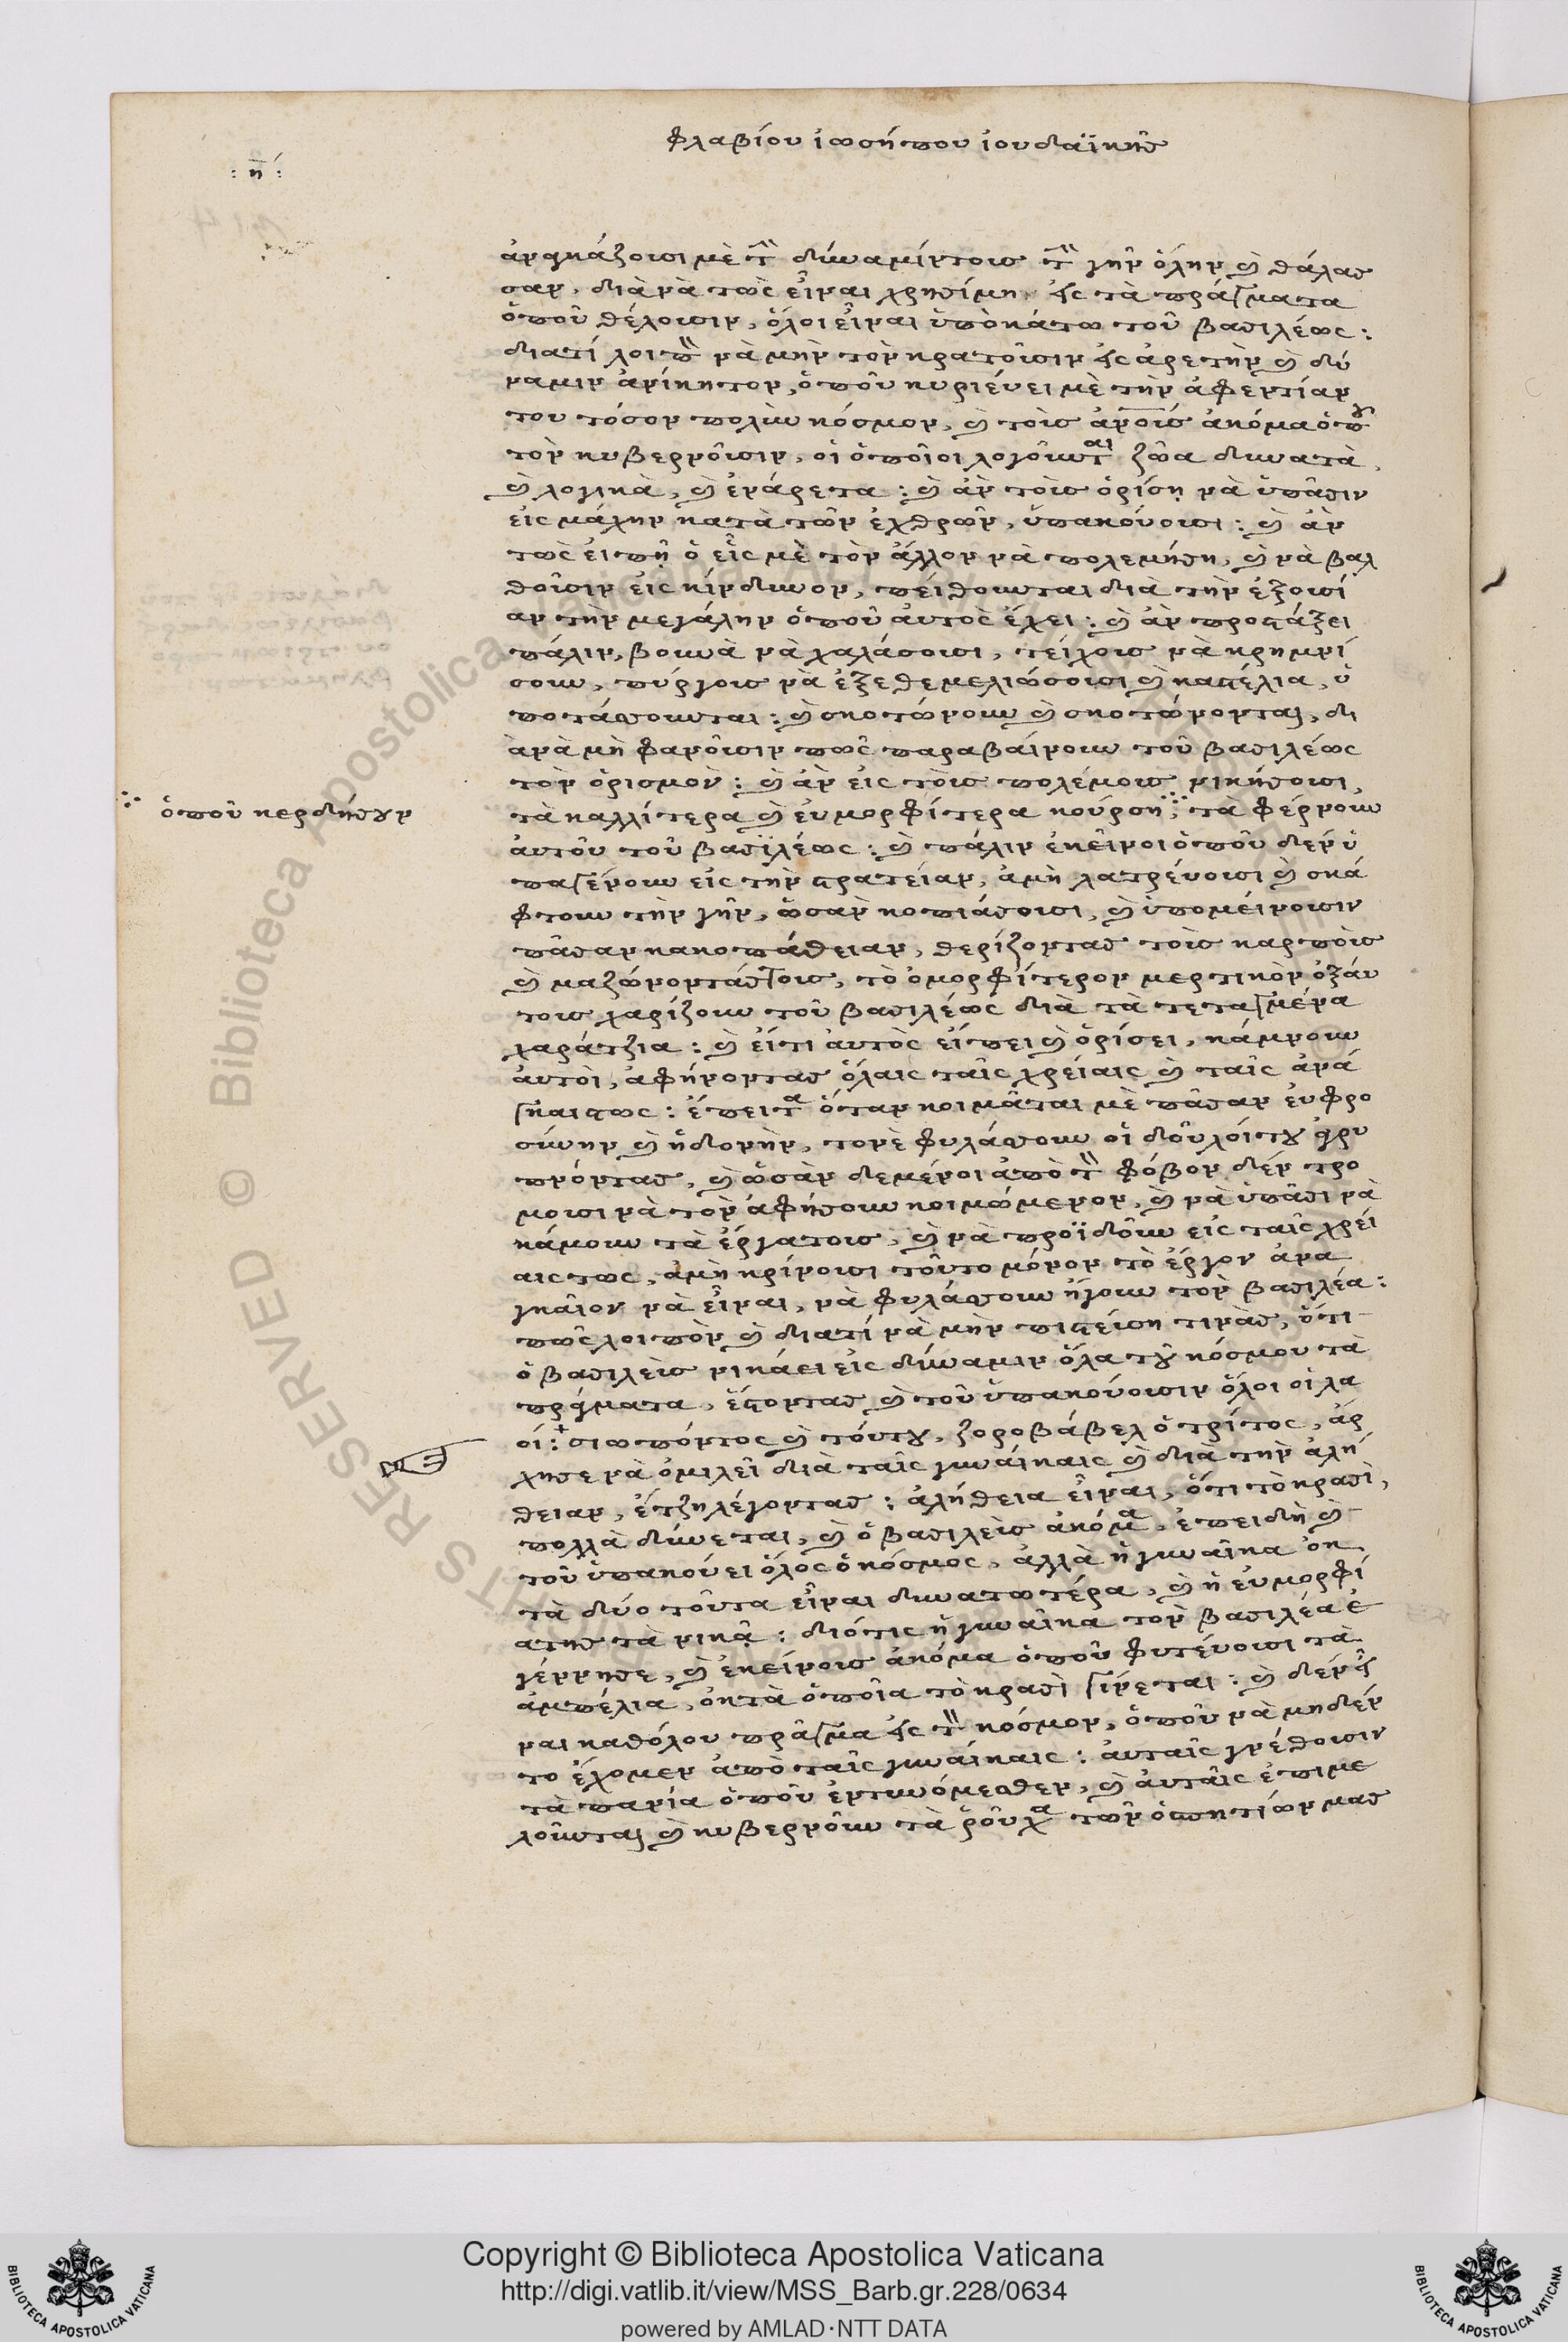 φλαβίου ἰωσήπου ἰουδαϊκῆς
: η :
ἀναγκάζουσι μὲ τὴν δύναμίν τους τὴν γῆν ὅλην καὶ θάλασ
σαν, διὰ νὰ τοὺς εἶναι χρησίμη, εἰς τὰ πράγματα
ὁποῦ θέλουσιν, ὅλοι εἶναι ὑποκάτω τοῦ βασιλέως :
διατί λοιπὸν νὰ μὴν τὸν κρατοῦσιν εἰς ἀρετὴν καὶ δύ
ναμιν ἀνίκητον, ὁποῦ κυριεύει μὲ τὴν ἀφεντίαν
του τόσον πολὺν κόσμον, καὶ τοὺς ἀνοὺς ἀκόμα ὁποῦ
τὸν κυβερνοῦσιν, οἱ ὁποῖοι λογοῦνται ζῶα δυνατὰ,
καὶ λογικὰ, καὶ ἐνάρετα : καὶ ἂν τοὺς ὁρίσῃ νὰ ὑπᾶσιν
εἰς μάχην κατὰ τῶν ἐχθρῶν, ὑπακούουσι : καὶ ἂν
τοὺς εἰπῇ ὁ εἷς μὲ τὸν ἄλλον νὰ πολεμήσῃ, καὶ νὰ βαλ
θοῦσιν εἰς κίνδυνον, πείθουνται διὰ τὴν ἐξουσί
αν τὴν μεγάλην ὁποῦ αὐτὸς ἔχει : καὶ ἂν προστάξει
πάλιν, βουνὰ νὰ χαλάσουσι, τείχους νὰ κρημνί
σουν, πύργους νὰ ἐξεθεμελιώσουσι καὶ καστέλια, ὑ
ποτάσουνται : καὶ σκοτώνουν καὶ σκοτώνονται, δι
ὰ νὰ μὴ φανοῦσιν πῶς παραβαίνουν τοῦ βασιλέως
τὸν ὁρισμὸν : καὶ ἂν εἰς τοὺς πολέμους νικήσουσι,
ὁποῦ κερδήσουν
τὰ καλλίτερα καὶ εὐμορφίτερα κούρση, τὰ φέρνουν
αὐτοῦ τοῦ βασιλέως : καὶ πάλιν ἐκεῖνοι ὁποῦ δὲν ὑ
παγένουν εἰς τὴν στρατείαν, ἀμὴ λατρεύουσι καὶ σκά
φτουν τὴν γῆν, ὡσὰν κοπιάσουσι, καὶ ὑπομείνουσιν
πᾶσαν κακοπάθειαν, θερίζοντας τοὺς καρποὺς
καὶ μαζώνοντάς τους, τὸ ὀμορφίτερον μερτικὸν ἐξ αὐ
τους χαρίζουν τοῦ βασιλέως διὰ τὰ τεταγμένα
χαράτζια : καὶ εἴτι αὐτὸς εἴπει καὶ ὁρίσει, κάμνουν
αὐτοὶ, ἀφήνοντας ὅλαις ταῖς χρείαις καὶ ταῖς ἀνά
γκαις τως : ἔπειτα ὅταν κοιμᾶται μὲ πᾶσαν εὐφρο
σύνην καὶ ἡδονὴν, τονὲ φυλάσουν οἱ δοῦλοί του ἀγρυ
πνόντας, καὶ ὡσὰν δεμένοι ἀπὸ τὸν φόβον δὲν τρο
μουσι νὰ τὸν ἀφήσουν κοιμώμενον, καὶ νὰ ὑπᾶσι νὰ
κάμουν τὰ ἔργα τους, καὶ νὰ προϊδοῦν εἰς ταῖς χρεί
αις τως, ἀμὴ κρίνουσι τοῦτο μόνον τὸ ἔργον ἀνα
γκαῖον νὰ εἶναι, νὰ φυλάσουν ἤγουν τὸν βασιλέα :
πῶς λοιπὸν καὶ διατί νὰ μὴν πιστεύσῃ τινὰς, ὅτι
ὁ βασιλεὺς νικάει εἰς δύναμιν ὅλα τοῦ κόσμου τὰ
πράγματα, ἔστοντας καὶ τοῦ ὑπακούουσιν ὅλοι οἱ λα
οί : σιωπόντος καὶ τούτου, ζοροβάβελ ὁ τρίτος, ἄρ
χησε νὰ ὁμιλεῖ διὰ ταῖς γυναίκαις καὶ διὰ τὴν ἀλή
θειαν, ἔτζη λέγοντας : ἀλήθεια εἶναι, ὅτι τὸ κρασὶ,
πολλὰ δύνεται, καὶ ὁ βασιλεὺς ἀκόμα, ἐπειδὴ καὶ
τοῦ ὑπακούει ὅλος ὁ κόσμος, ἀλλὰ ἡ γυναῖκα ὀκ
τὰ δύο τοῦτα εἶναι δυνατωτέρα, καὶ ἡ εὐμορφί
α της τὰ νικᾷ : διότις ἡ γυναῖκα τὸν βασιλέα ἐ
γέννησε, καὶ ἐκείνους ἀκόμα ὁποῦ φυτεύουσι τὰ
ἀμπέλια, ὀκτὰ ὁποῖα τὸ κρασὶ γίνεται : καὶ δὲν εἶ
ναι καθόλου πρᾶγμα εἰς τὸν κόσμον, ὁποῦ νὰ μηδὲν
τὸ ἔχομεν ἀπὸ ταῖς γυναίκαις : αὐταῖς γνέθουσιν
τὰ πανία ὁποῦ ἐντυνόμεσθεν, καὶ αὐταῖς ἐπιμε
λοῦνται καὶ κυβερνοῦν τὰ ροῦχα τῶν ὁσπητίων μας
Copyright © Biblioteca Apostolica Vaticana
http://digi.vatlib.it/view/MSS_Barb.gr.228/0634
powered by AMLAD·NTT DATA